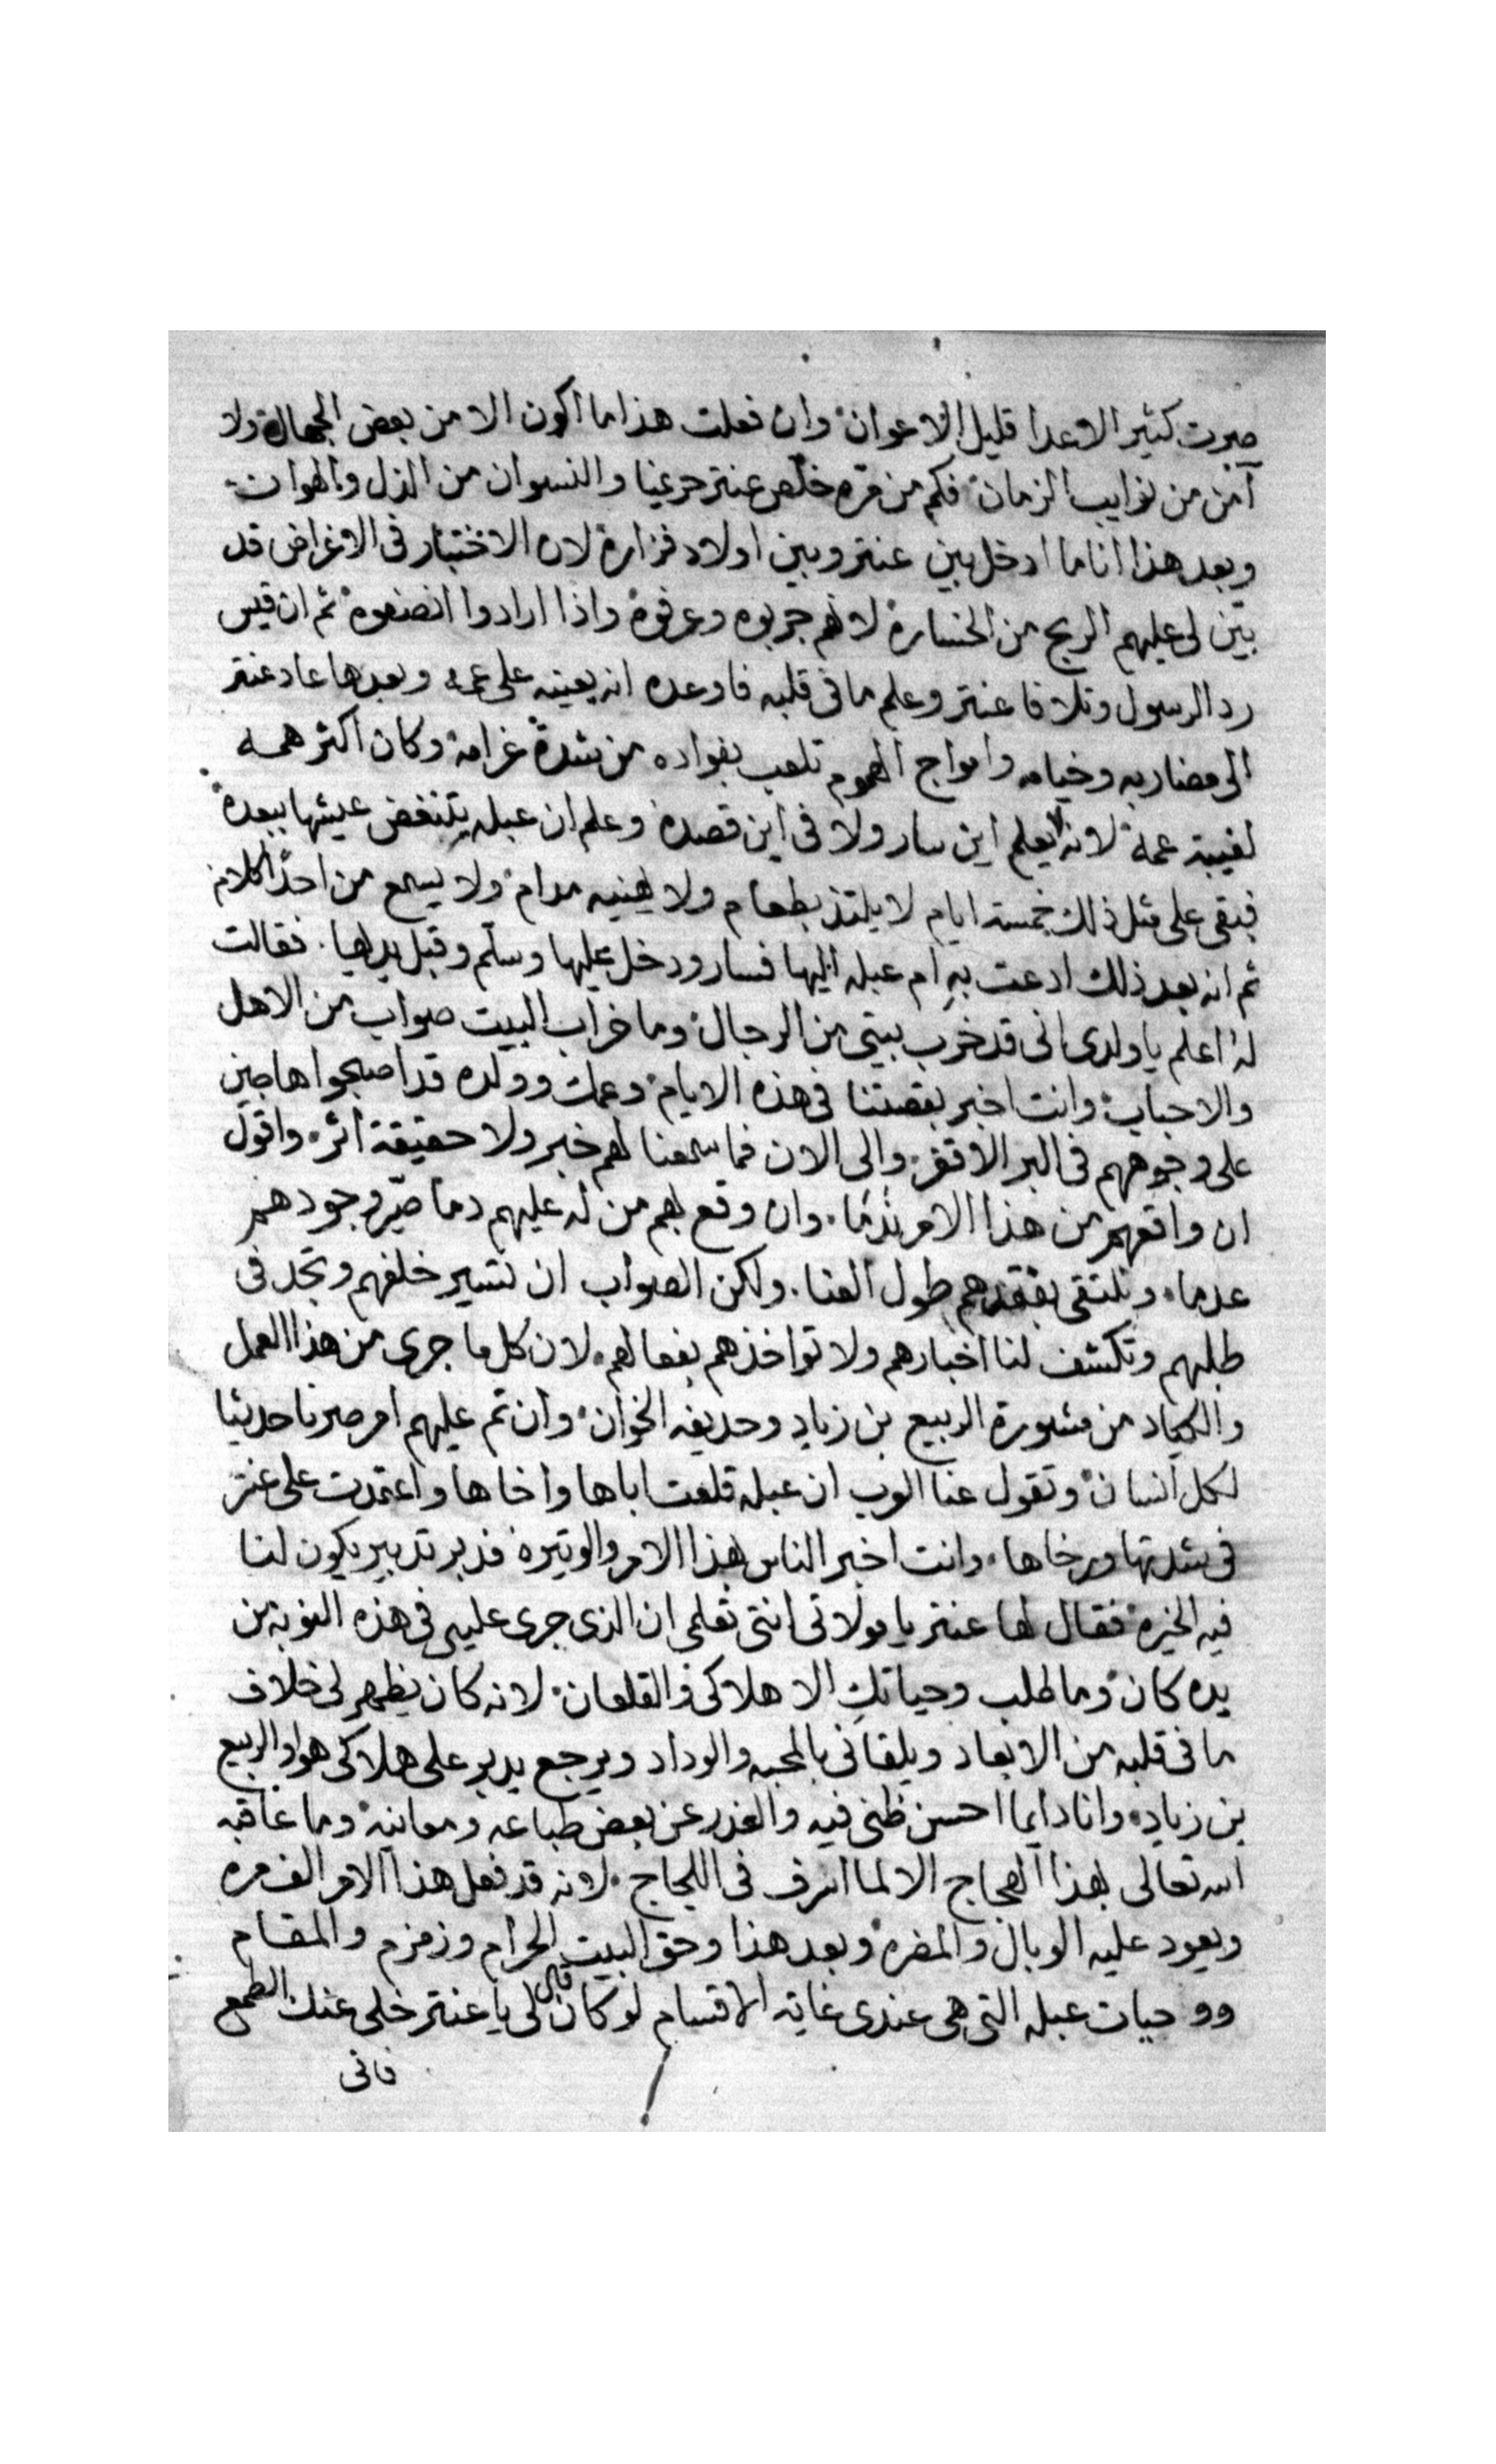 صرت كثير الاعدا قليل الاعوان وان فعلت هذا ما اكون الا من بعض الجهال ولا
آمن من نوايب الزمان فكم من مره خلّص عنتر حريمنا والنسوان من الذل والهوان
وبعد هذا انا ما ادخل بين عنتر وبين اولاد فزارة لان الاختبار فى الاغراض قد
بيّن لى عليهم الربح من الخسارة لانهم جربوه وعرفوه واذا ارادوا انصفوه ثم ان قيس
رد الرسول وتلافا عنتر وعلم ما فى قلبه فاوعده انه يعينه على عمه وبعدها عاد عنتر
الى مضاربه وخيامه وامواج الهموم تلعب بفواده من شدة غرامه وكان اكثر همه
لغيبة عمه لانه لا يعلم اين سار ولا فى اين قصده وعلم ان عبله يتنغض عيشها ببعده
فبقى على مثل ذلك خمسة ايام لا يلتذ بطعام ولا يهنيه مدام ولا يسمع من احدًا كلام
ثم انه بعد ذلك ادعت به ام عبله اليها فسار ودخل عليها وسلّم وقبل يديها. فقالت
له اعلم يا ولدى انى قد خرب بيتى من الرجال وما خراب البيت صواب من الاهل
والاحباب وانت اخبر بقصتنا فى هذه الايام وعمك وولده قد اصبحوا هاجين
على وجوههم فى البر الاقفر والى الان فما سمعنا لهم خبر ولا حقيقة اثر. واقول
ان واقعهم من هذا الامر ندمًا. وان وقع بهم من له عليهم دما صيّر وجودهم
عدما. ونلتقى بفقدهم طول العنا. ولكن الصواب ان تسير خلفهم وتجد فى
طلبهم وتكشف لنا اخبارهم ولا تواخذهم بفعالهم. لان كل ما جرى من هذا العمل
والكياد من مشورة الربيع بن زياد وحديفه الخوان وان تم عليهم امر صرنا حديثا
لكل انسان وتقول عنا العرب ان عبله قلعت اباها واخاها واعتمدت على عنتر
فى شدتها ورخاها. وانت اخبر الناس بهذا الامر والوتيره فدبر تدبير يكون لنا
فيه الخيره فقال لها عنتر يا مولاتى انتى تعلمى ان الذى جرى عليه فى هذه النوبة من
يده كان وما طلب وحياتكِ الا هلاكى والقلعان لانه كان يظهر لى خلاف
ما فى قلبه من الابعاد ويلقانى بالمحبه والوداد ويرجع يدبر على هلاكى هو والربيع
بن زياد. وانا دايما احسن ظنى فيه والغدر عن بعض طباعه ومعانيه وما عاقبه
الله تعالى بهذا العجاج الا لما اسرف فى اللجاج. لانه قد فعل هذا الامر الف مره
ويعود عليه الوبال والمضره وبعد هذا وحق البيت الحرام وزمزم والمقام
ووحيات عبله التى هى عندى غاية الاقسام لو كان قال لى يا عنتر خلى عنك الطمع
فانى